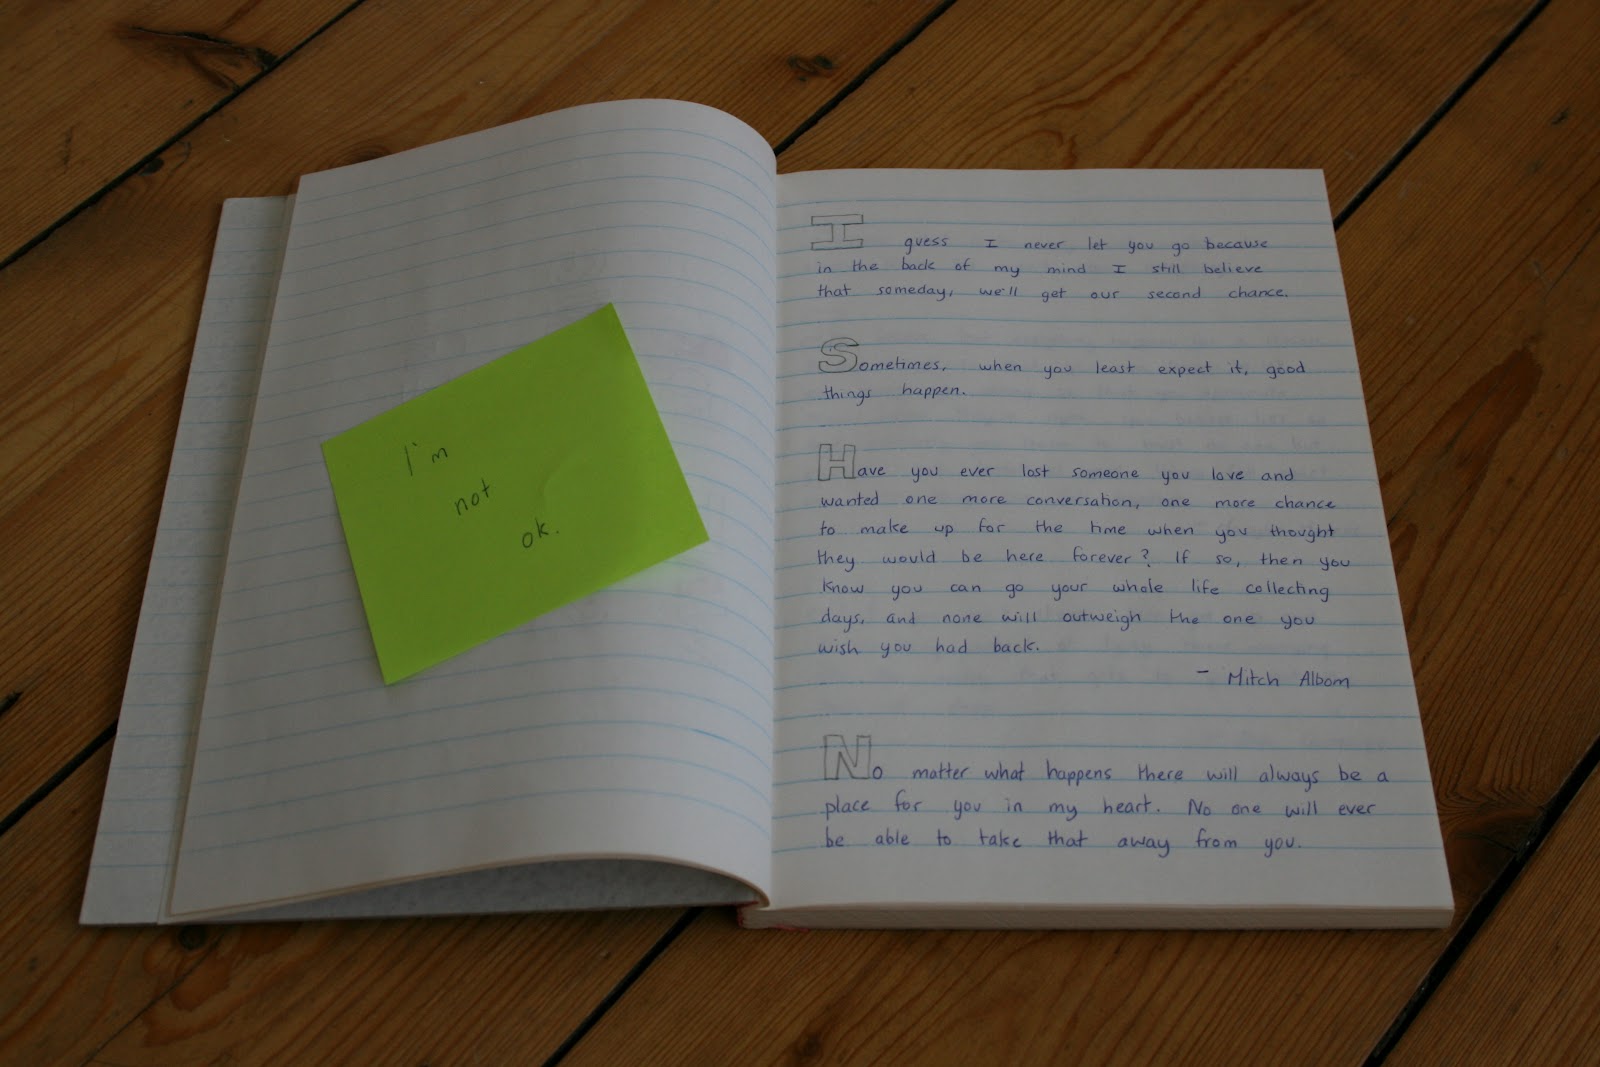 I'm
not
ok.
I guess I never let you go because
in the back of my mind I still believe
that someday, we'll get our second chance.
Sometimes, when you least expect it, good
things happen.
Have you ever lost someone you love and
wanted one more conversation, one more chance
to make up for the time when you thought
they would be here forever? If so, then you
know you can go your whole life collecting
days, and none will outweigh the one you
wish you had back.
- Mitch Albom
No matter what happens there will always be a
place for you in my heart. No one will ever
be able to take that away from you.